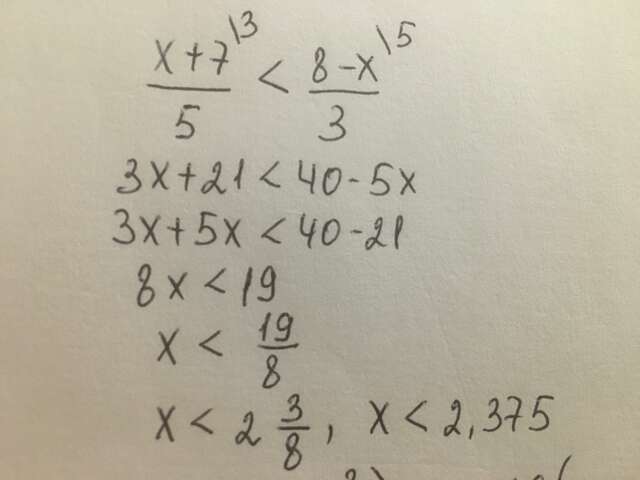 (x+7)/5 \3 < (8-x)/3 \5
3x+21 < 40-5x
3x+5x < 40-21
8x < 19
x < 19/8
x < 2 3/8, x < 2,375